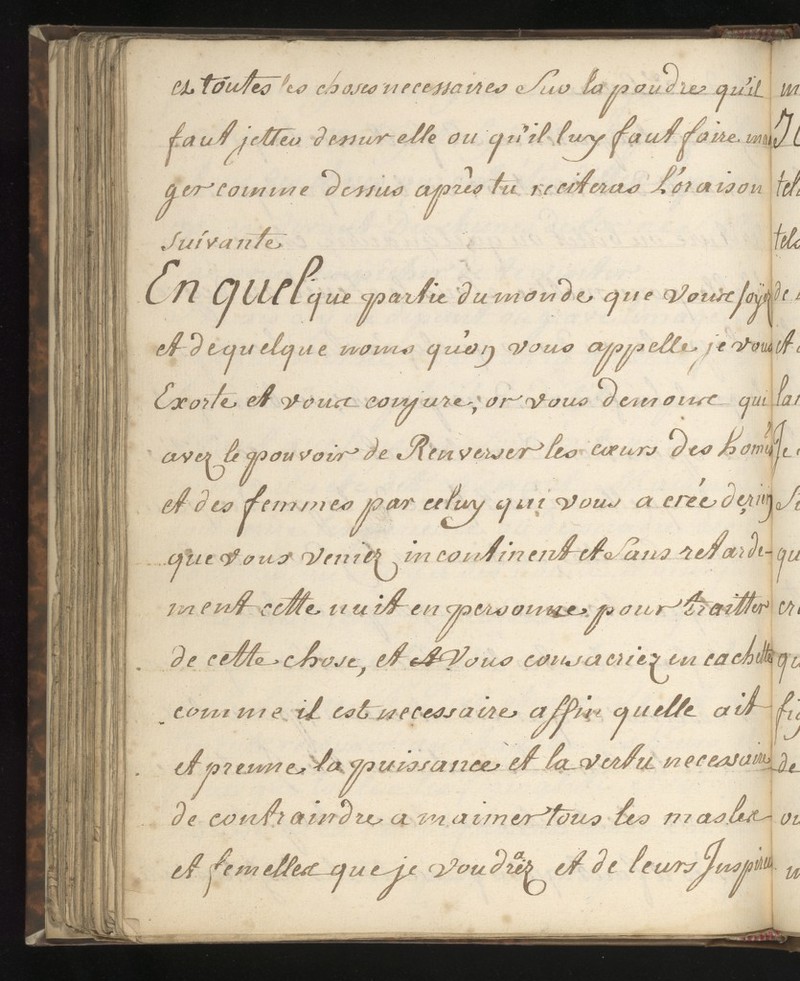 et toutes les choses necessaires Sur la poudre qu'il
faut jetter dessur elle ou qu'il luy faut faire man
ger comme dessus après tu reciteras L'oraison
suivante
En quelque partie du monde que vous soÿez
et de quelque noms qu'on vous appelle je vous
Exorte et vous conjure, or vous demons qui
avez le pouvoir de Renverser les cœurs des hom̃es
et des femmes par celuy qui vous a crée de rien
que vous veniez incontinent et Sans retarde-
ment cette nuit en personne pour traitter
de cette chose, et Vous consacriez en cachette
comme il est necessaire affin quelle ait
et prenne la puissance et la vertu necessaire
de contraindre a maimer tous les masles
et femelles que je voudraez et de leurs Inspirer
m
te
tels
de
et
lan
Je
Su
qu
cre
qu
fig
de
ou